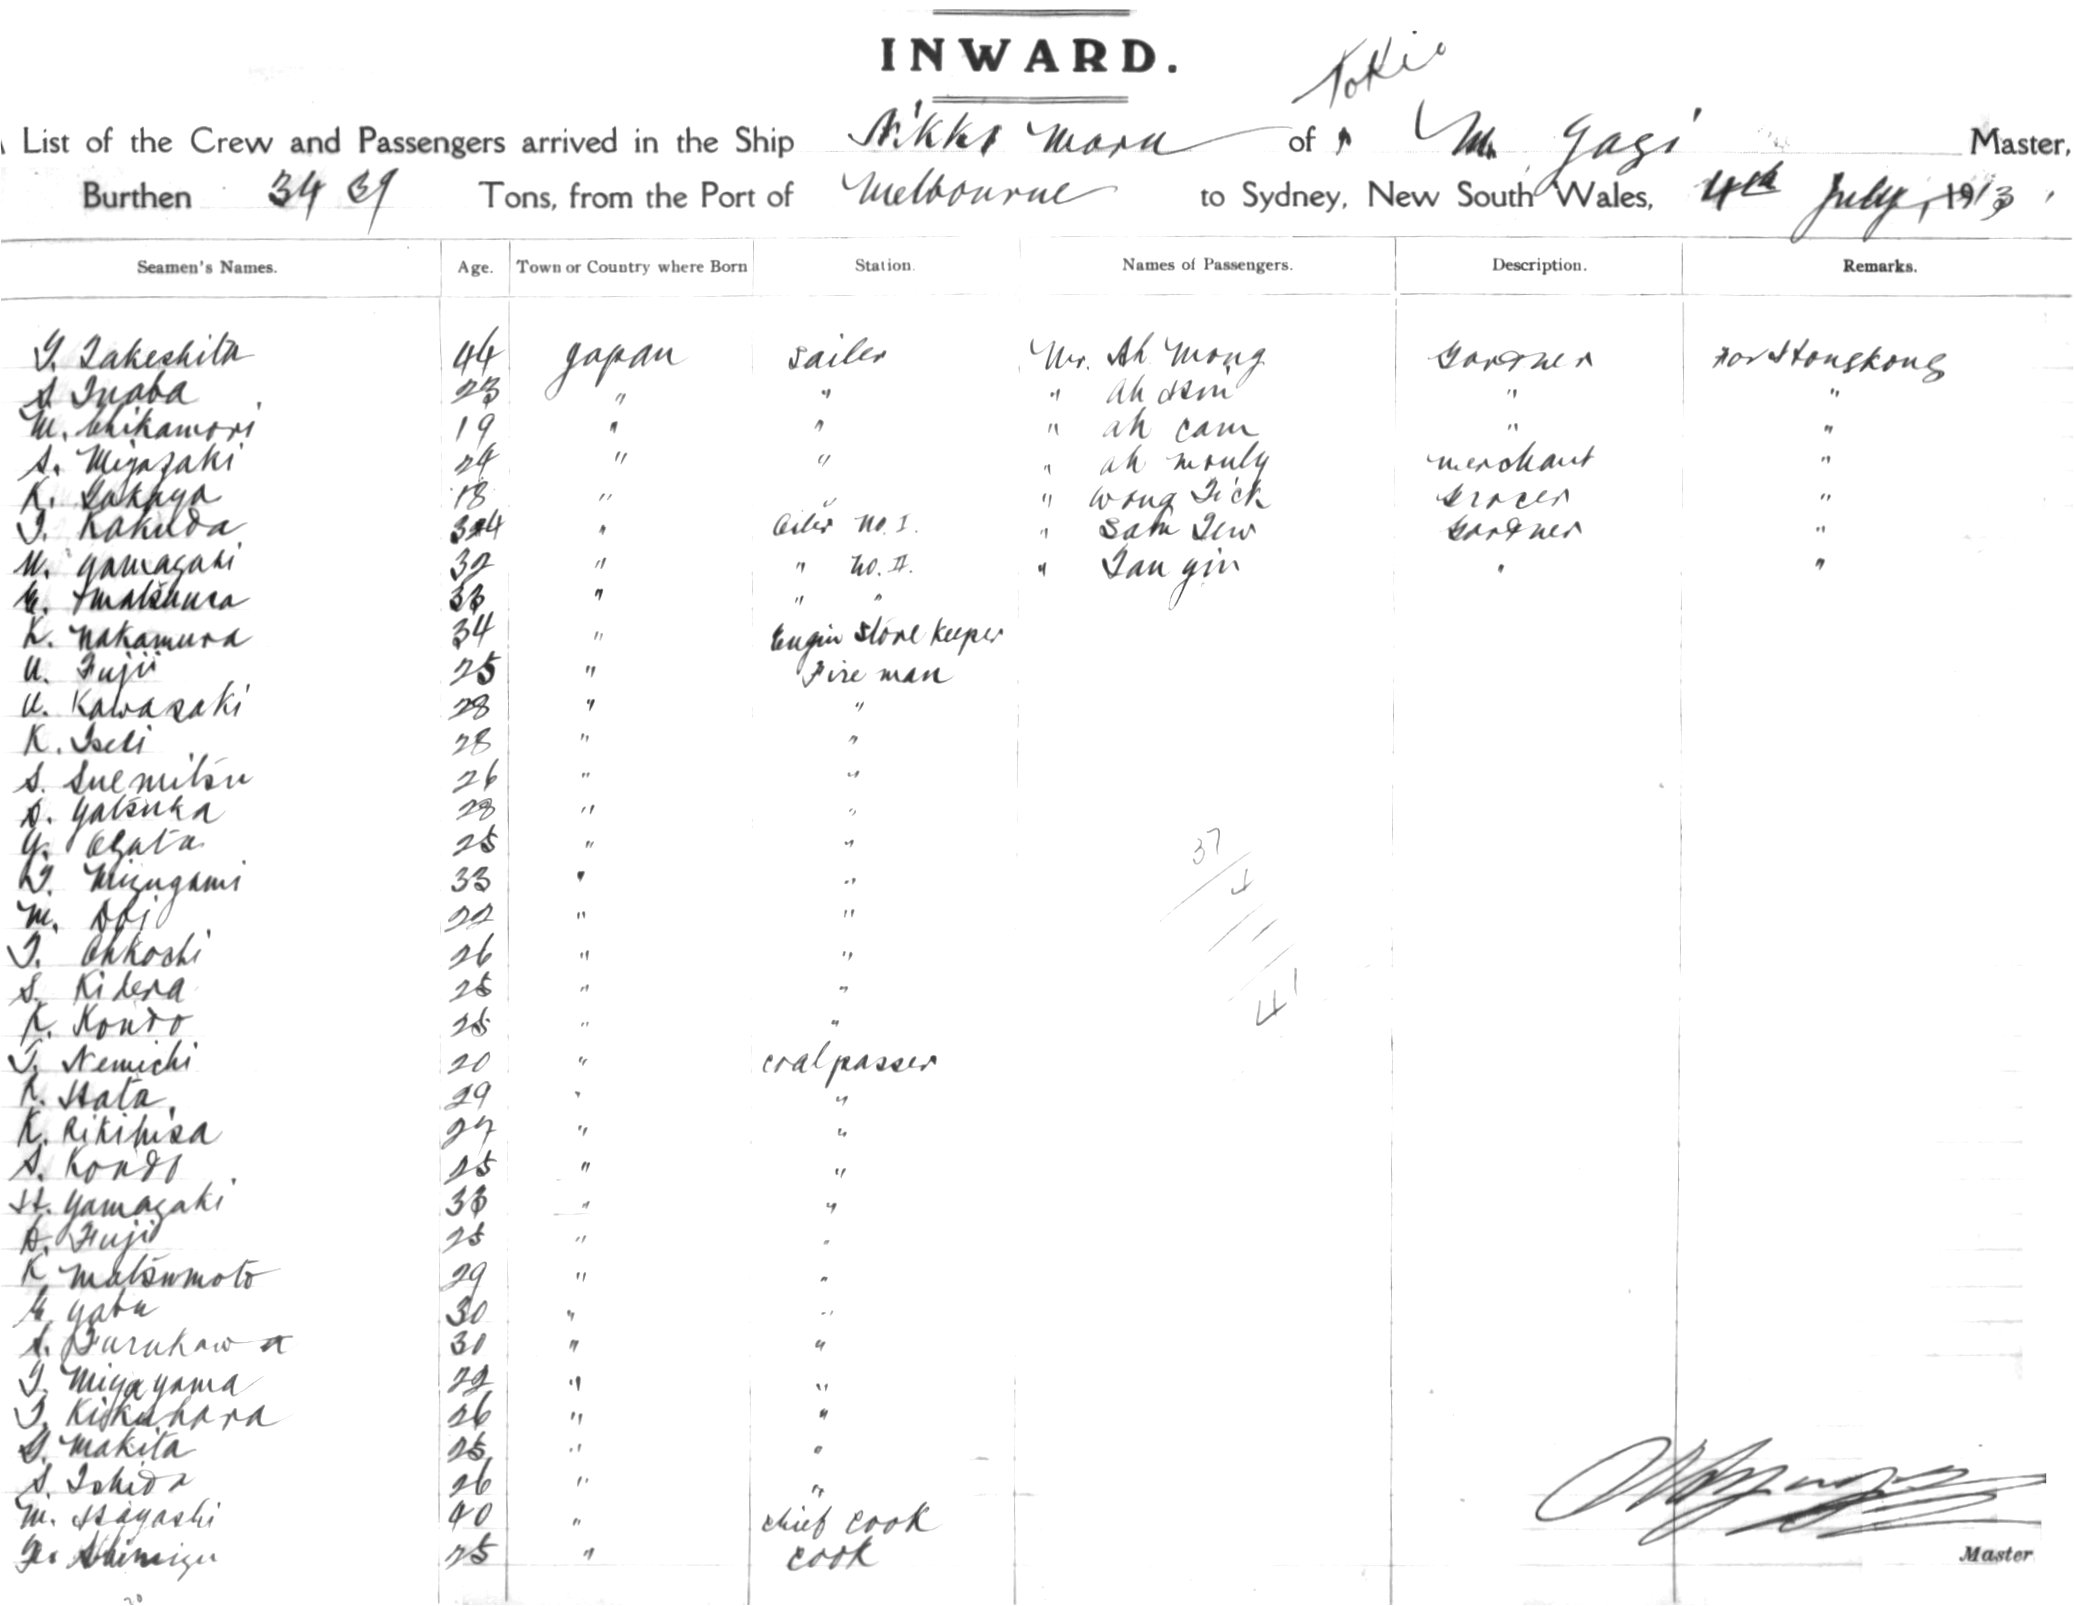 INWARD.
Tokio
List of the Crew and Passengers arrived in the Ship Nikko Maru of M. Yagi Master,
Burthen 3439 Tons, from the Port of Melbourne to Sydney, New South Wales, 4th July, 1913.
Seamen's Names. Age. Town or Country where Born Station. Names of Passengers. Description. Remarks.
Y. Takeshita 44 Japan Sailer Mr. Ah Mong Gardner For Hongkong
S. Inaba 23 " " " Ah " "
M. Chikamori 19 " " " Ah Cam " "
S. Miyazaki 24 " " " Ah Mouly merchant "
K. 18 " " " Wong Tick Grocer "
T. Kakuda 34 " Oiler No. I. " Sam Tew Gardner "
M. Yamagaki 32 " " No. II. " Tan Yin " "
Matsuura 33 " " "
K. Nakamura 34 " Engin Store Keeper
U. Fujii 25 " Fire man
U. Kawasaki 28 " "
K. Iseli 28 " "
S. Suemitsu 26 " "
S. Yatsuka 28 " "
Y. Ogata 25 " "
T. Mizugami 33 " "
M. Doi 22 " "
T. Ohkoshi 26 " "
S. Kidera 25 " "
K. Kondo 25 " "
T. Nemichi 20 " coal passer
K. Hata 29 " "
K. Rikihisa 27 " "
S. Kondo 25 " "
H. Yamagaki 33 " "
Fujii 25 " "
K. Matsumoto 29 " "
Yabu 30 " "
S. Furukawa 30 " "
T. Miyayama 22 " "
T. Kikuhara 26 " "
Makita 25 " "
S. Ishida 26 " "
M. Hayashi 40 " chief cook
Shimizu 25 " cook
37
4
41
Master